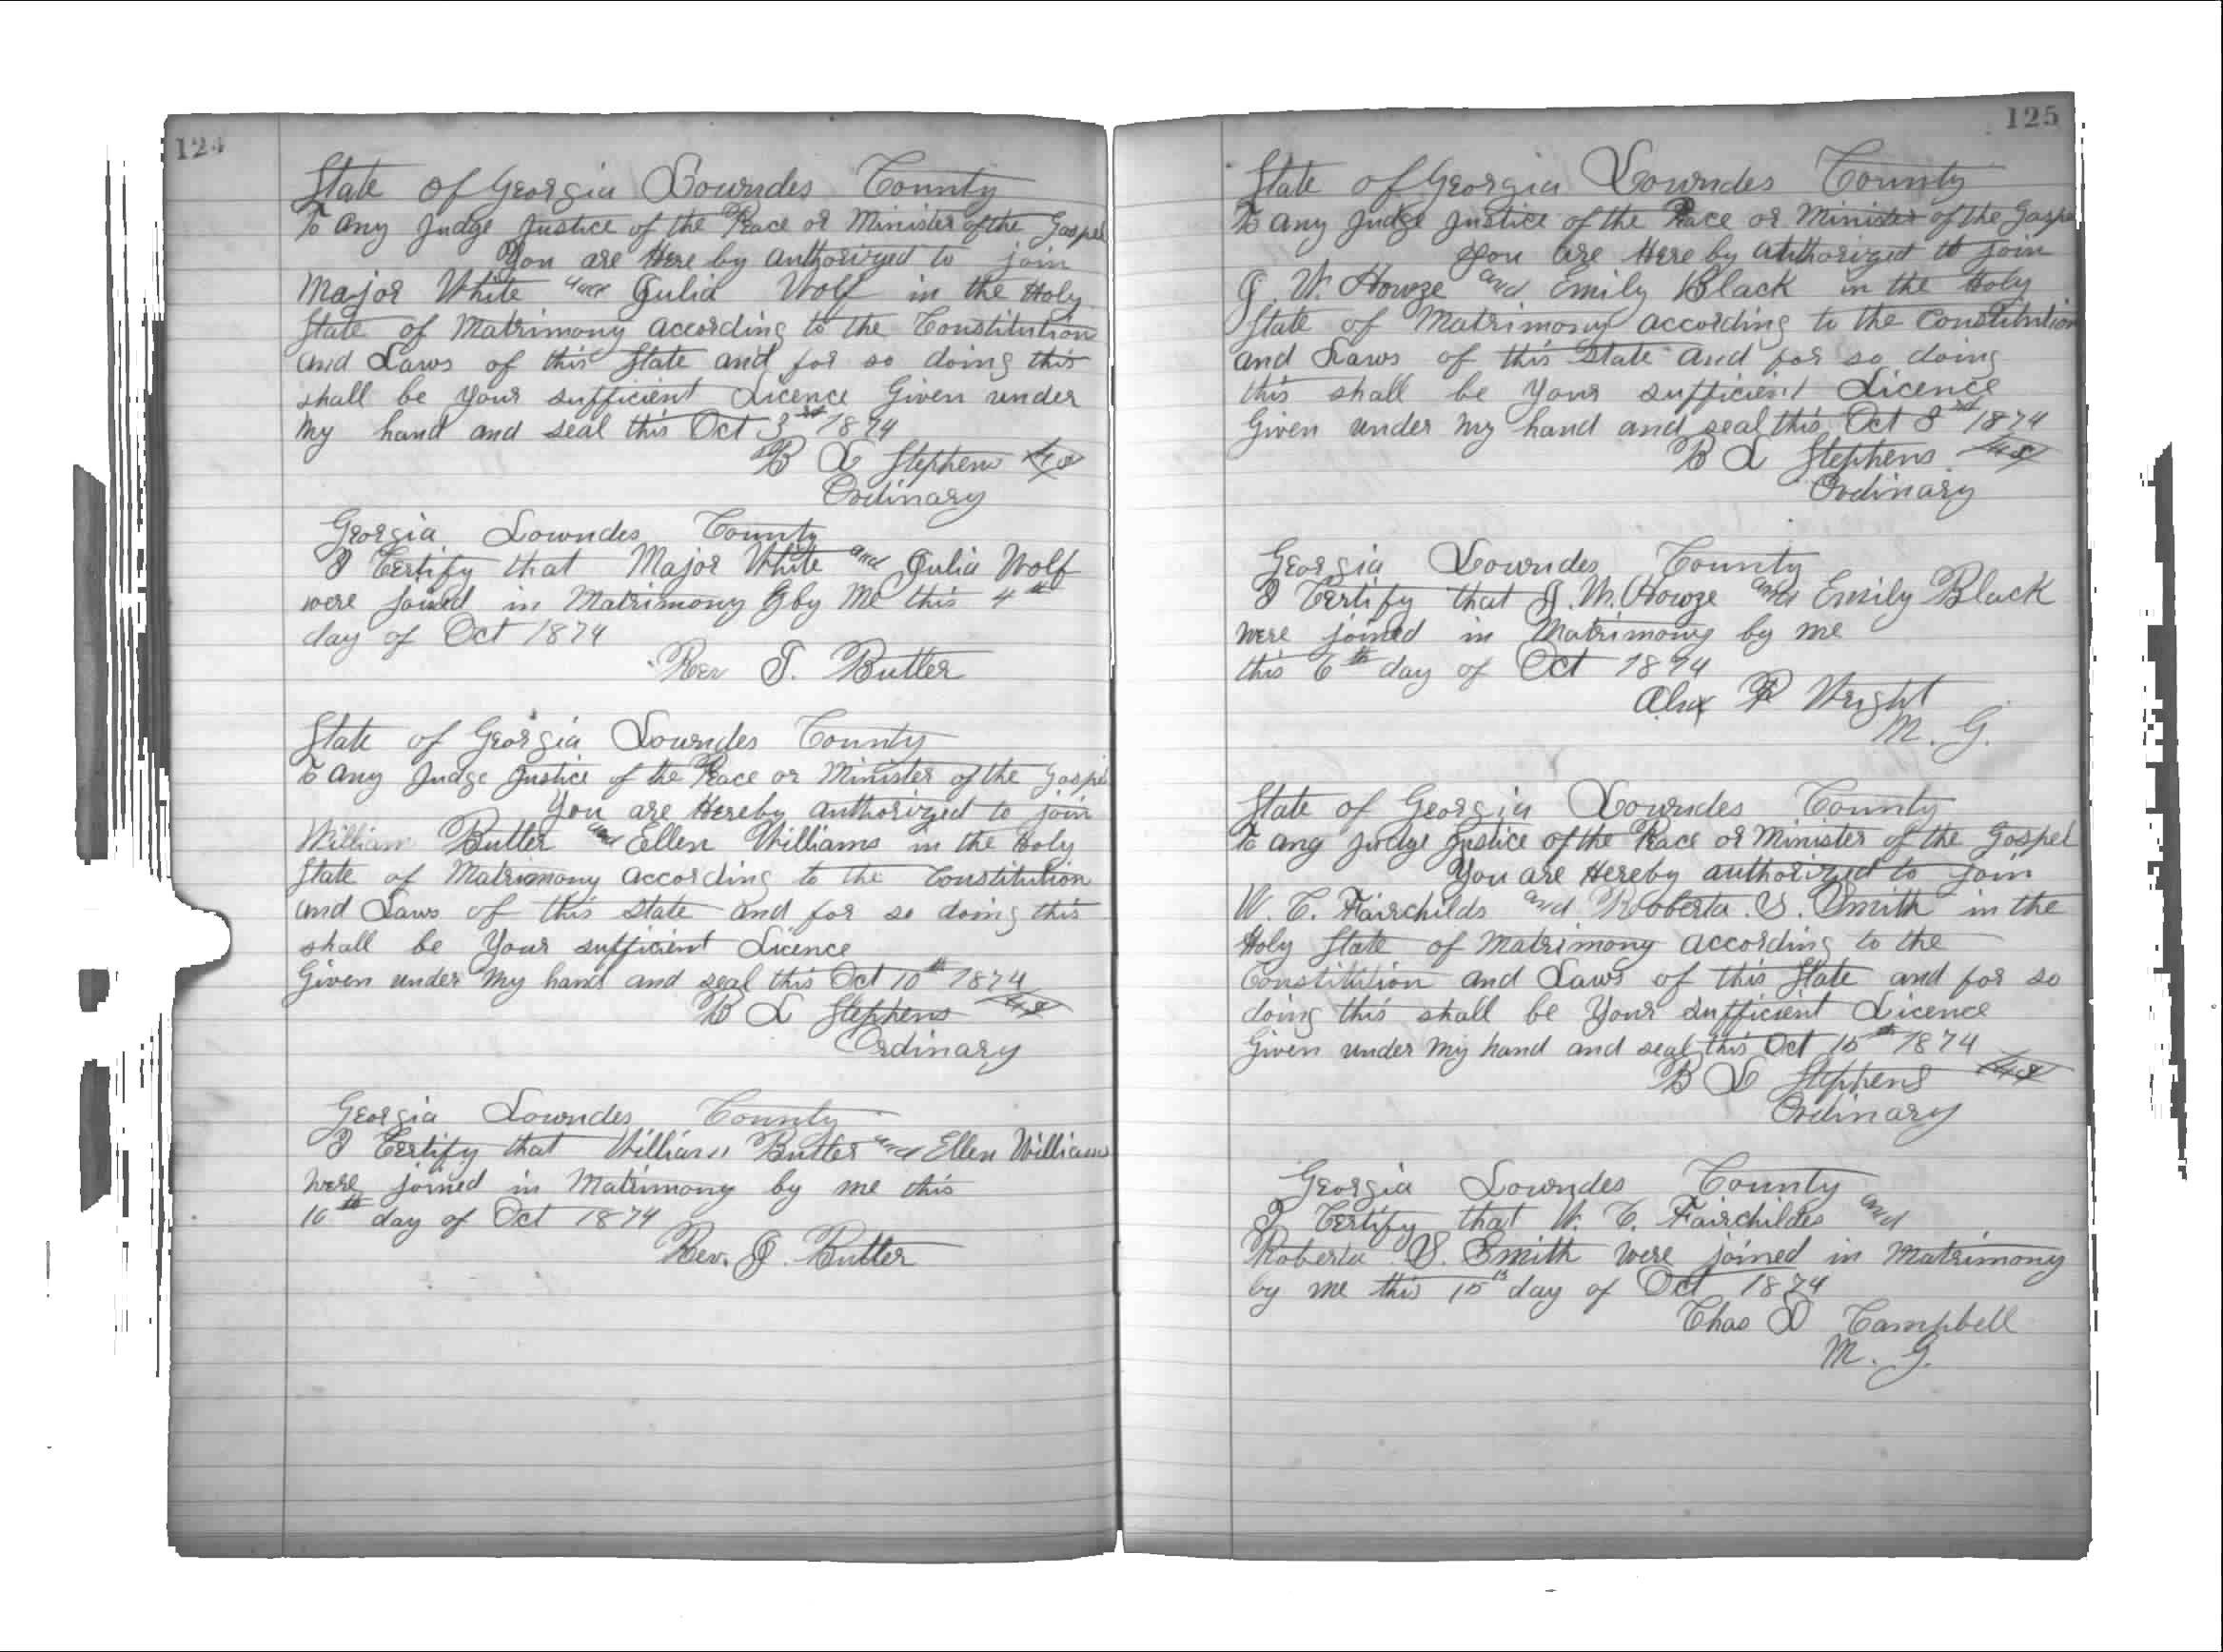 124
State of Georgia Lowndes County
To any Judge Justice of the Peace or Minister of the Gospel
You are Here by authorized to join
Major White and Julia Wolf in the Holy
State of Matrimony according to the Constitution
and Laws of this State and for so doing this
shall be your sufficient Licence Given under
my hand and seal this Oct 3rd 1874
B L Stephens LS
Ordinary
Georgia Lowndes County
I Certify that Major White and Julia Wolf
were joined in Matrimony by me this 4th
day of Oct 1874
Rev J. Butler
State of Georgia Lowndes County
To any Judge Justice of the Peace or Minister of the Gospel
You are Hereby authorized to join
William Butler and Ellen Williams in the Holy
State of Matrimony according to the Constitution
and Laws of this State and for so doing this
shall be Your sufficient Licence
Given under my hand and seal this Oct 10th 1874
B L Stephens LS
Ordinary
Georgia Lowndes County
I Certify that William Butler and Ellen Williams
were joined in Matrimony by me this
10th day of Oct 1874
Rev. J. Butler
125
State of Georgia Lowndes County
To any Judge Justice of the Peace or Minister of the Gospel
you are Here by authorized to join
J. W. Howze and Emily Black in the Holy
State of Matrimony according to the Constitution
and Laws of this State and for so doing
this shall be Your sufficient Licence
Given under my hand and seal this Oct 3rd 1874
B L Stephens LS
Ordinary
Georgia Lowndes County
I Certify that J. W. Howze and Emily Black
were joined in Matrimony by me
this 6th day of Oct 1874
Alex P Wright
M. G.
State of Georgia Lowndes County
To any Judge Justice of the Peace or Minister of the Gospel
You are Hereby authorized to join
W. C. Fairchilds and Roberta S. Smith in the
Holy State of Matrimony according to the
Constitution and Laws of this State and for so
doing this shall be Your sufficient Licence
Given under my hand and seal this Oct 15th 1874
B L Stephens LS
Ordinary
Georgia Lowndes County
I Certify that W. C. Fairchildes and
Roberta S. Smith were joined in Matrimony
by me this 15th day of Oct 1874
Chas D Campbell
M. G.